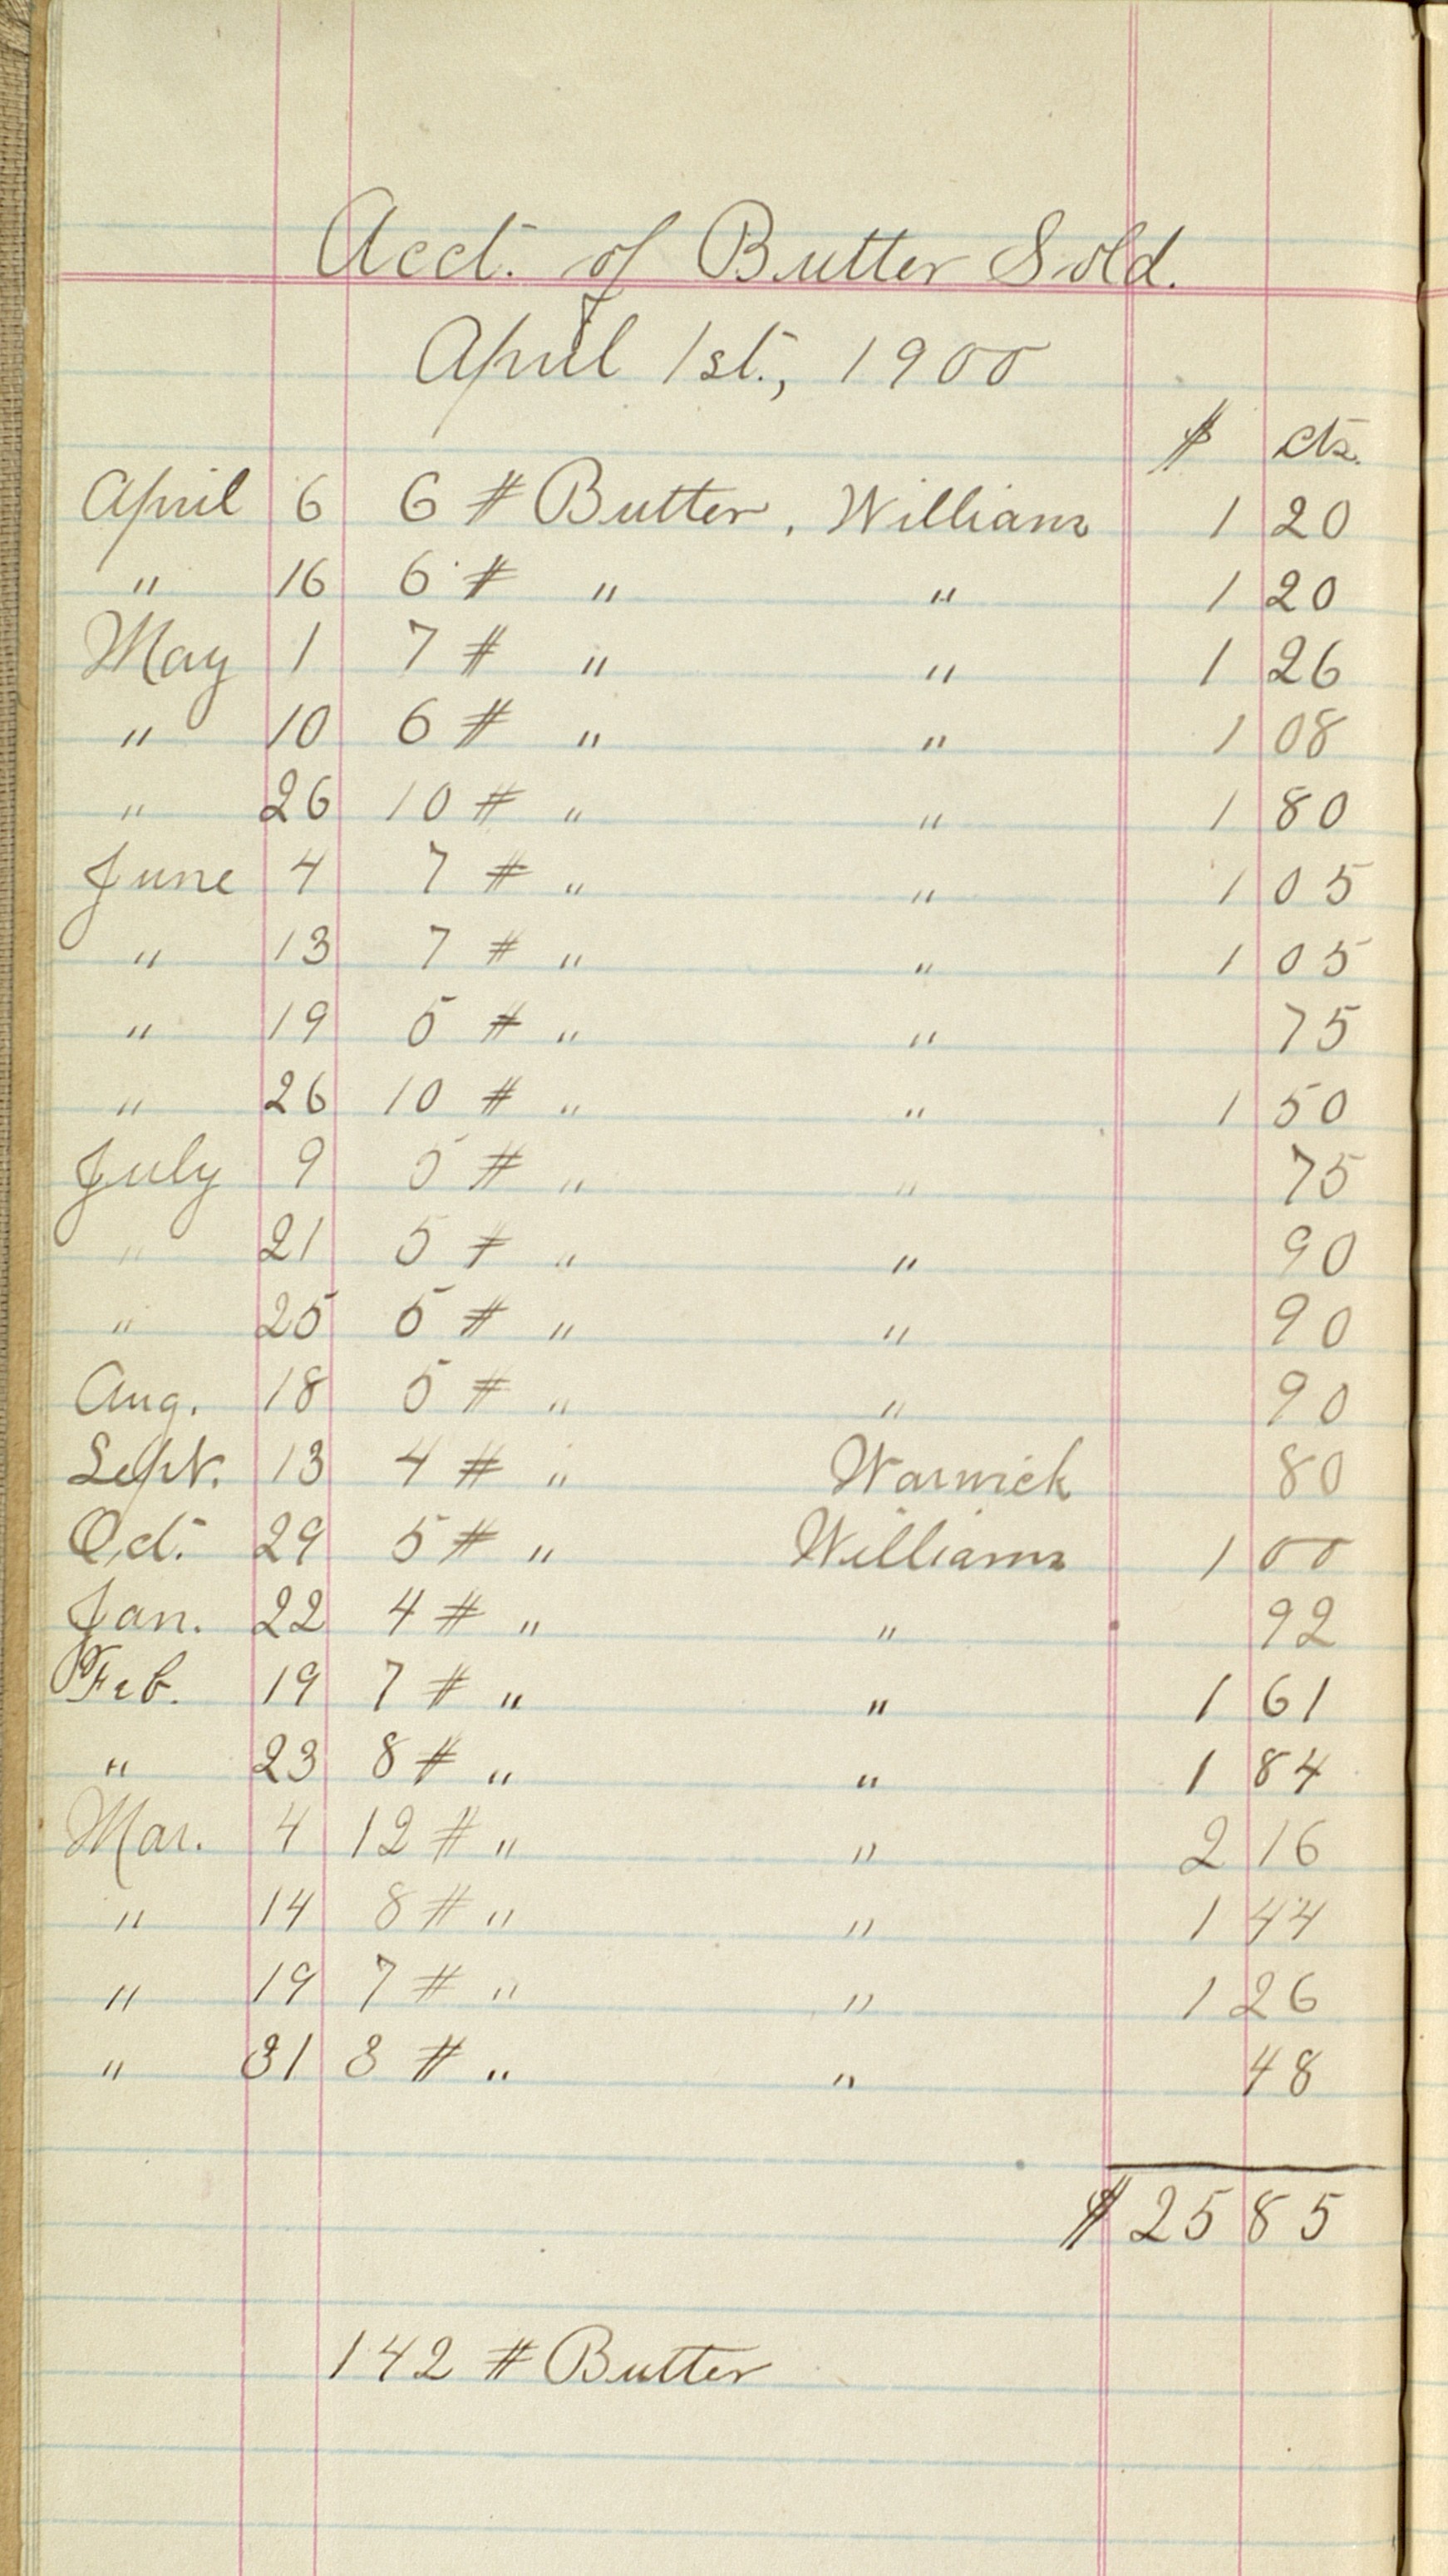 Acct. of Butter Sold.
April 1st., 1900
$ cts.
April 6 6 # Butter, Williams 1 20
" 16 6 # " " 1 20
May 1 7 # " " 1 26
" 10 6 # " " 1 08
" 26 10 # " " 1 80
June 4 7 # " " 1 05
" 13 7 # " " 1 05
" 19 5 # " " 75
" 26 10 # " " 1 50
July 9 5 # " " 75
" 21 5 # " " 90
" 25 5 # " " 90
Aug. 18 5 # " " 90
Sept. 13 4 # " Warwick 80
Oct. 29 5 # " Williams 1 00
Jan. 22 4 # " " 92
Feb. 19 7 # " " 1 61
" 23 8 # " " 1 84
Mar. 4 12 # " " 2 16
" 14 8 # " " 1 44
" 19 7 # " " 1 26
" 31 3 # " " 48
$ 25 85
142 # Butter